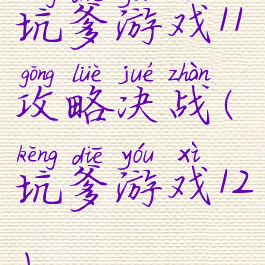 坑爹游戏11
gōng lüè jué zhàn
攻略决战(
kēng diē yóu xì
坑爹游戏12